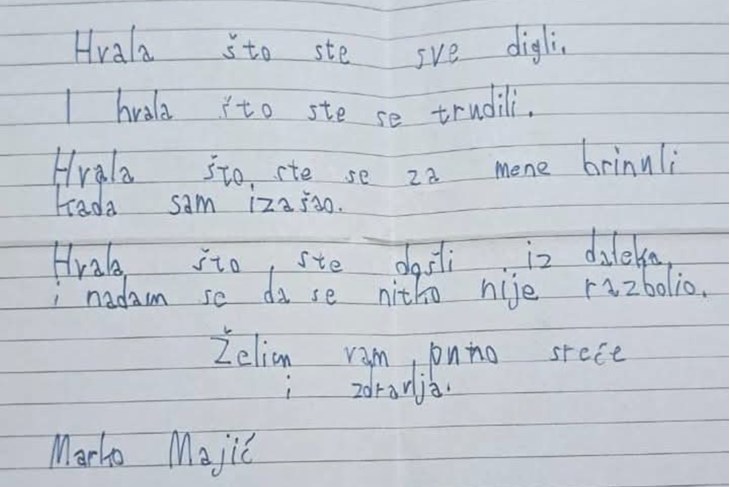 Hvala što ste sve digli.
I hvala što ste se trudili.
Hvala što ste se za mene brinuli
kada sam izašao.
Hvala što ste došli iz daleka,
i nadam se da se nitko nije razbolio.
Želim vam puno sreće
i zdravlja.
Marko Majić